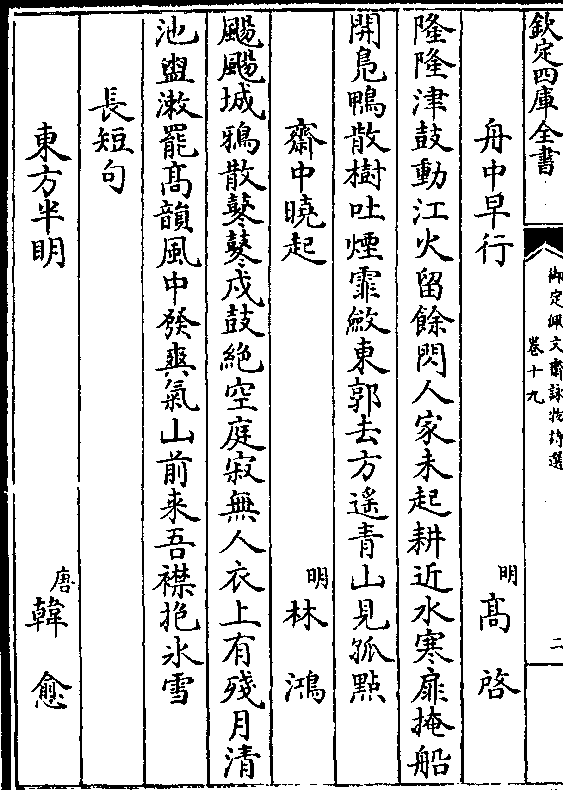 欽定四庫全書
御定佩文齋詠物詩選
卷十九
二
舟中早行
明
高啓
隆隆津鼓動江火留餘閃人家未起耕近水寒扉掩船
開鳧鴨散樹吐煙霏斂東郭去方遙青山見孤點
齋中曉起
明
林鴻
颺颺城鴉散鼕鼕戍鼓絶空庭寂無人衣上有殘月清
池盥漱罷髙韻風中發爽氣山前来吾襟抱氷雪
長短句
東方半明
唐
韓愈